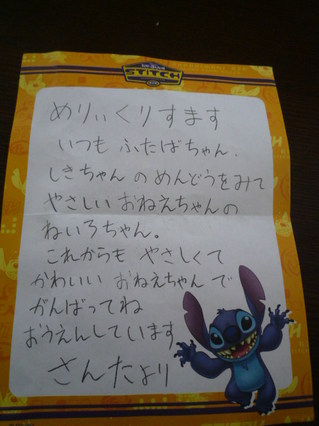 STITCH
めりぃくりすます
いつも ふたばちゃん、
しきちゃん のめんどうをみて
やさしい おねえちゃんの
ねいろちゃん。
これからも やさしくて
かわいい おねえちゃん で
がんばってね
おうえんしています
さんたより